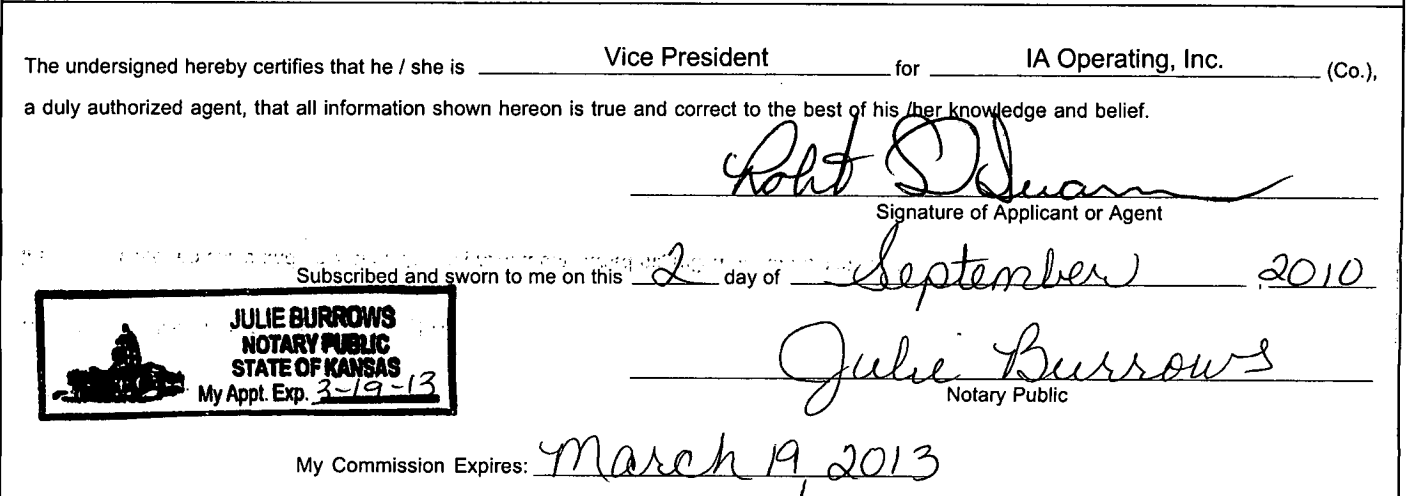 The undersigned hereby certifies that he / she is Vice President for IA Operating, Inc. (Co.),
a duly authorized agent, that all information shown hereon is true and correct to the best of his /her knowledge and belief.
Signature of Applicant or Agent
Subscribed and sworn to me on this 2 day of September , 2010
JULIE BURROWS
NOTARY PUBLIC
STATE OF KANSAS
My Appt. Exp. 3-19-13
Julie Burrows
Notary Public
My Commission Expires: March 19, 2013